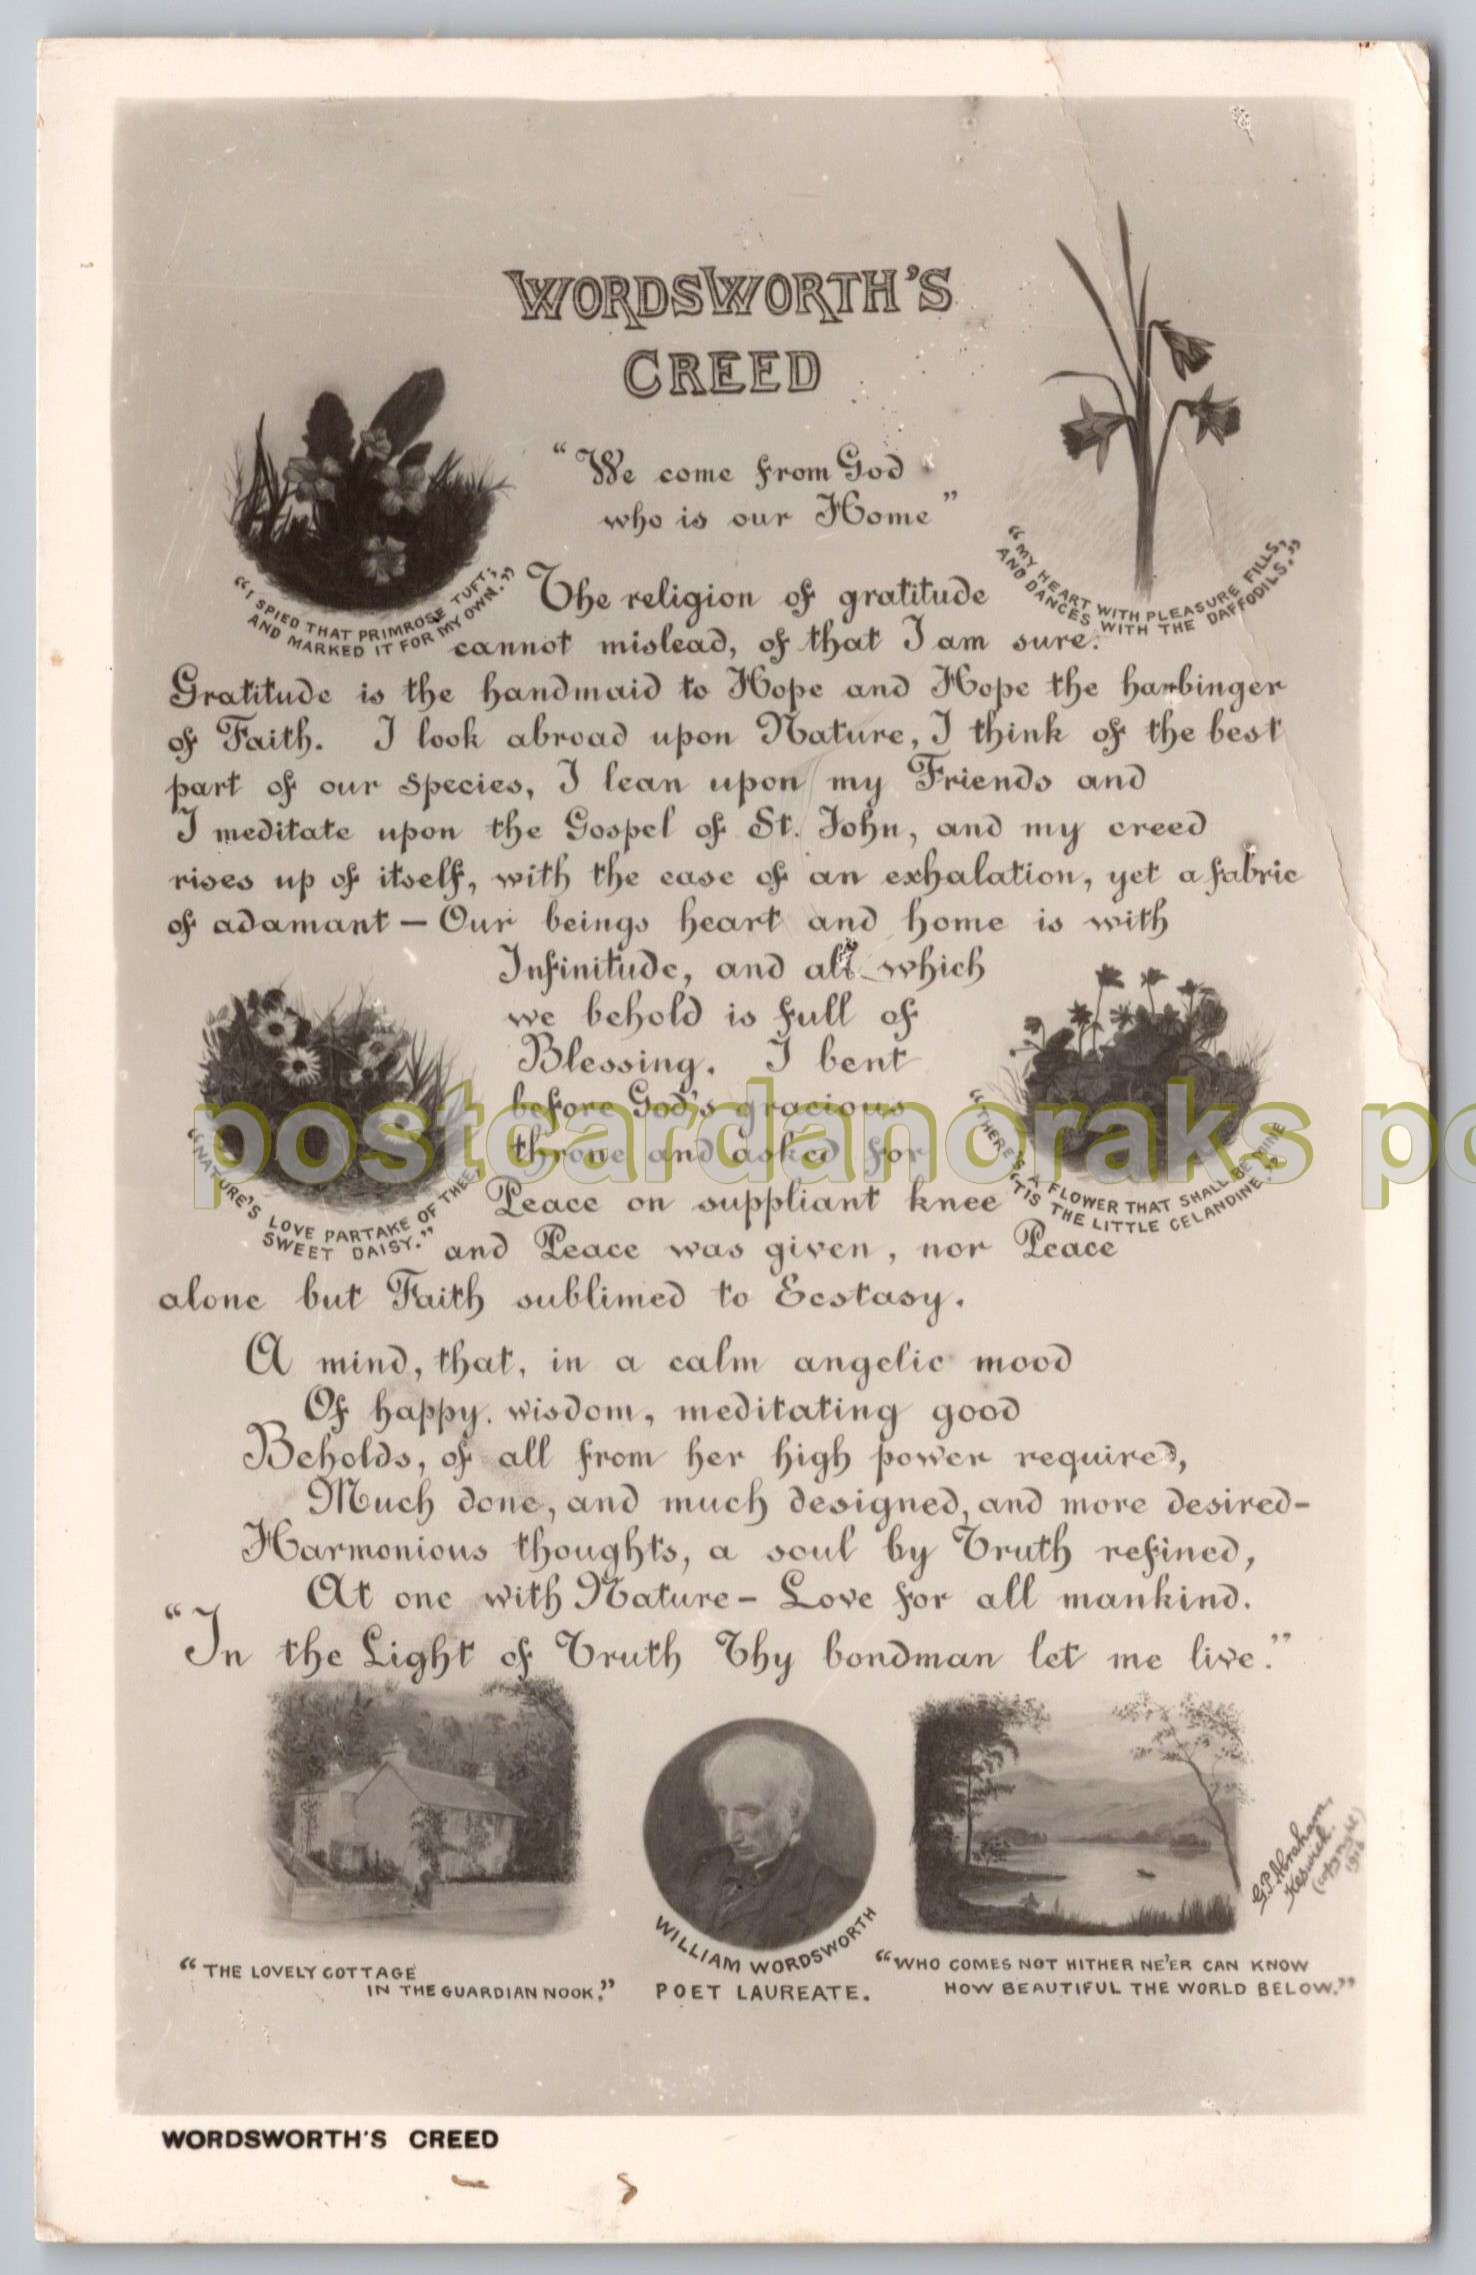 WORDSWORTH'S
CREED
"We come from God
who is our Home"
"I SPIED THAT PRIMROSE TUFT;
AND MARKED IT FOR MY OWN."
"MY HEART WITH PLEASURE FILLS,
AND DANCES WITH THE DAFFODILS."
The religion of gratitude
cannot mislead, of that I am sure.
Gratitude is the handmaid to Hope and Hope the harbinger
of Faith. I look abroad upon Nature, I think of the best
part of our species, I lean upon my Friends and
I meditate upon the Gospel of St. John, and my creed
rises up of itself, with the ease of an exhalation, yet a fabric
of adamant — Our beings heart and home is with
Infinitude, and all which
we behold is full of
Blessing. I bent
before God's gracious
throne and asked for
Peace on suppliant knee
and Peace was given, nor Peace
alone but Faith sublimed to Ecstasy.
"NATURE'S LOVE PARTAKE OF THEE,
SWEET DAISY."
"THERE'S A FLOWER THAT SHALL BE MINE
'TIS THE LITTLE CELANDINE."
postcardanoraks po
A mind, that, in a calm angelic mood
Of happy. wisdom, meditating good
Beholds, of all from her high power required,
Much done, and much designed, and more desired-
Harmonious thoughts, a soul by Truth refined,
At one with Nature - Love for all mankind.
"In the Light of Truth Thy bondman let me live."
G.P. Abraham,
Keswick.
(copyright)
"THE LOVELY COTTAGE
IN THE GUARDIAN NOOK."
WILLIAM WORDSWORTH
POET LAUREATE.
"WHO COMES NOT HITHER NE'ER CAN KNOW
HOW BEAUTIFUL THE WORLD BELOW."
WORDSWORTH'S CREED